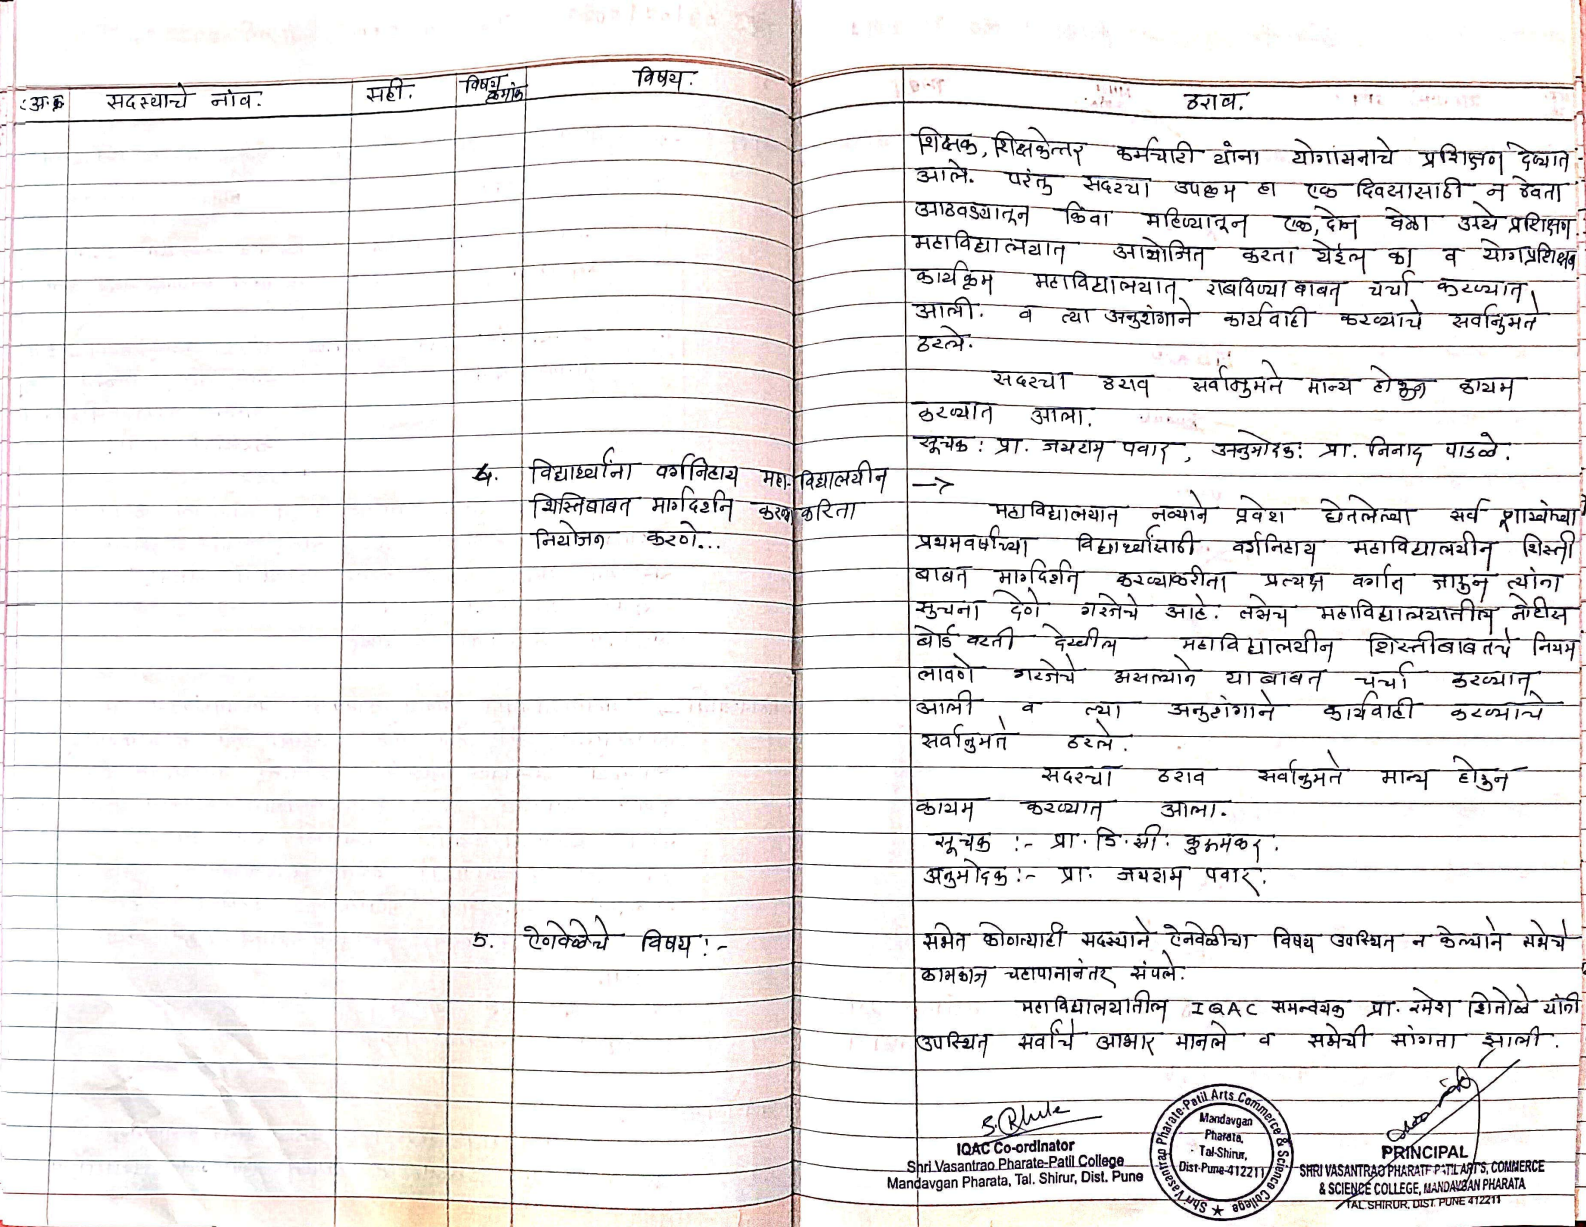 अ.क्र सदस्याचे नांव. सही. विषय क्रमांक विषय. ठराव.
शिक्षक, शिक्षकेत्तर कर्मचारी यांना योगासनाचे प्रशिक्षण देण्यात
आले. परंतु सदरचा उपक्रम हा एक दिवसासाठी न ठेवता
आठवड्यातून किंवा महिण्यातून एक, दोन वेळा असे प्रशिक्षण
महाविद्यालयात आयोजित करता येईल का व योगप्रशिक्षण
कार्यक्रम महाविद्यालयात राबविण्याबाबत चर्चा करण्यात
आली. व त्या अनुशंगाने कार्यवाही करण्याचे सर्वानुमते
ठरले.
सदरचा ठराव सर्वानुमते मान्य होऊन कायम
करण्यात आला.
सूचक : प्रा. जयराम पवार, अनुमोदक: प्रा. निनाद पाडळे.
4. विद्यार्थ्यांना वर्गनिहाय महा-विद्यालयीन
शिस्तिबाबत मार्गदर्शन करण्याकरिता
नियोजन करणे...
→
महाविद्यालयात नव्याने प्रवेश घेतलेल्या सर्व शाखांच्या
प्रथमवर्षाच्या विद्यार्थ्यांसाठी वर्गनिहाय महाविद्यालयीन शिस्ती
बाबत मार्गदर्शन करण्याकरीता प्रत्यक्ष वर्गात जाऊन त्यांना
सुचना देणे गरजेचे आहे. तसेच महाविद्यालयातील नोटीस
बोर्ड वरती देखील महाविद्यालयीन शिस्तीबाबतचे नियम
लावणे गरजेचे असल्याने याबाबत चर्चा करण्यात
आली व त्या अनुशंगाने कार्यवाही करण्याचे
सर्वानुमते ठरले.
सदरचा ठराव सर्वानुमते मान्य होऊन
कायम करण्यात आला.
सूचक :- प्रा. डि. सी. कुरुमकर.
अनुमोदक :- प्रा. जयराम पवार.
5. ऐणवेळेचे विषय :-
सभेत कोणत्याही सदस्याने ऐनवेळीचा विषय उपस्थित न केल्याने सभेचे
कामकाज चहापानानंतर संपले.
महाविद्यालयातील IQAC समन्वयक प्रा. रमेश शितोळे यांनी
उपस्थित सर्वांचे आभार मानले व सभेची सांगता झाली.
IQAC Co-ordinator
Shri Vasantrao Pharate-Patil College
Mandavgan Pharata, Tal. Shirur, Dist. Pune
Shri. Vasantrao Pharate-Patil Arts, Commerce & Science College
Mandavgan
Pharata,
Tal-Shirur,
Dist-Pune-412211
PRINCIPAL
SHRI VASANTRAO PHARATE PATIL ARTS, COMMERCE
& SCIENCE COLLEGE, MANDAVGAN PHARATA
TAL. SHIRUR, DIST. PUNE 412211